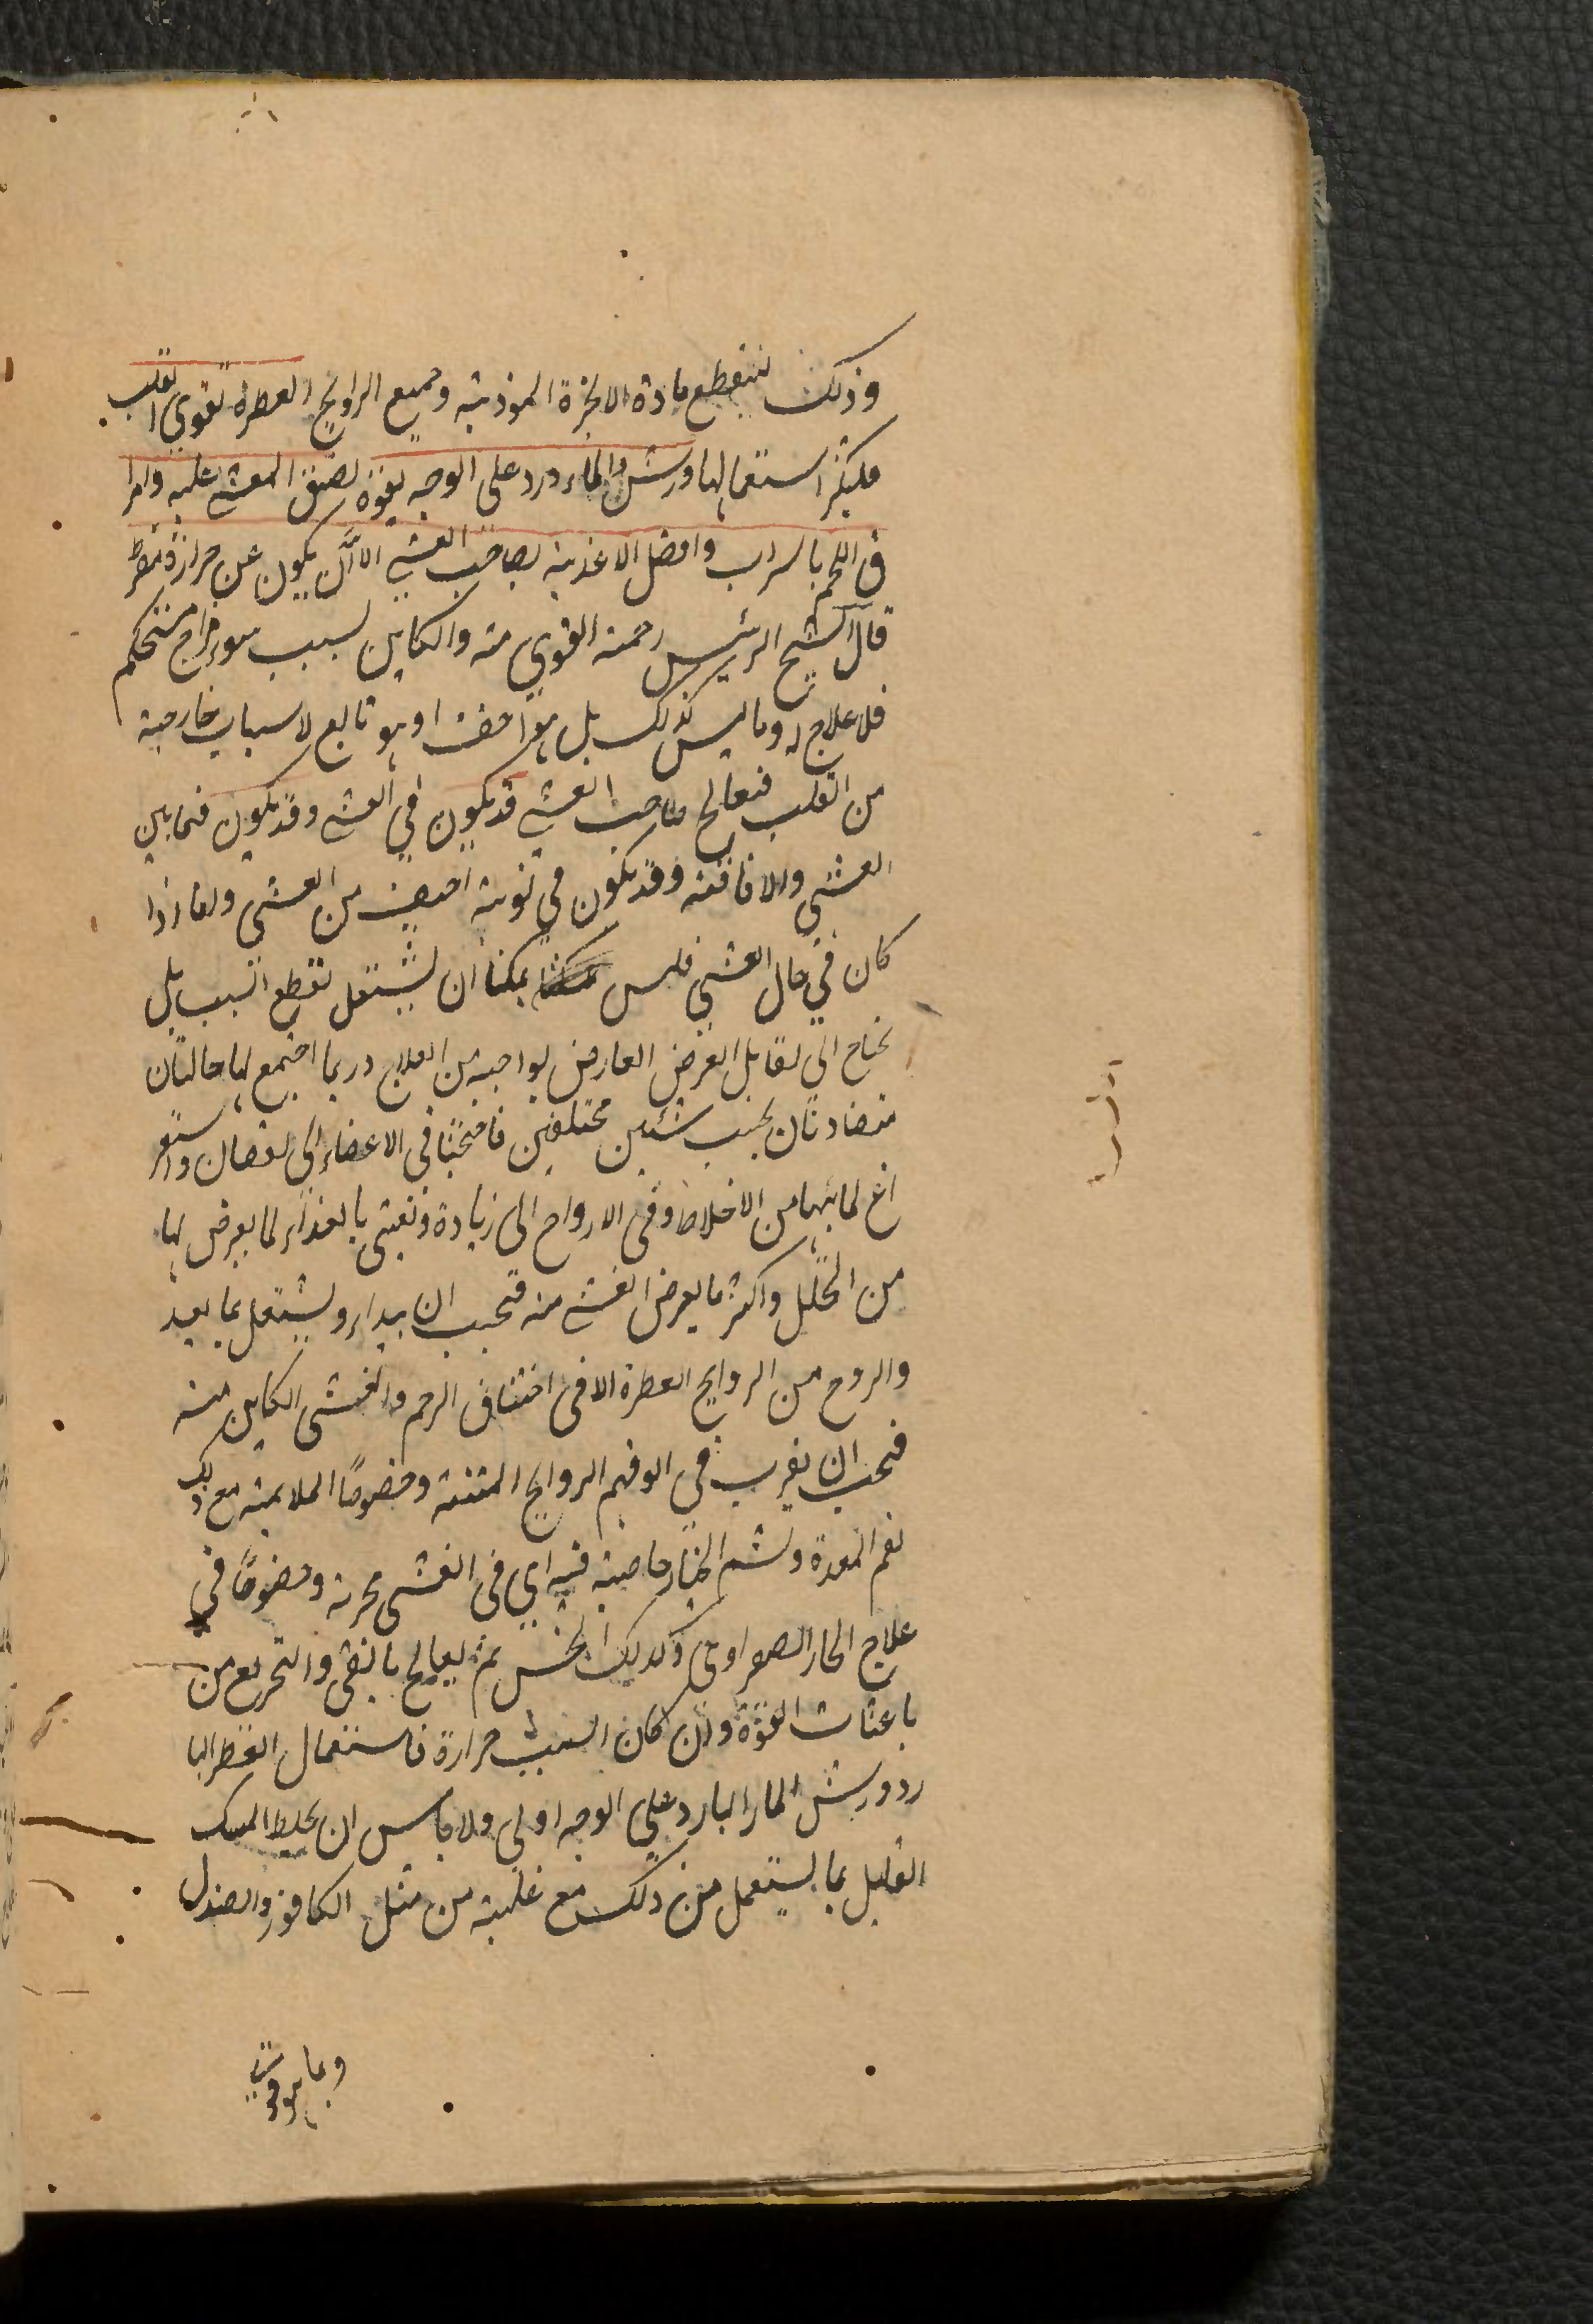 وذلك لتنقطع مادة الابخرة الموذية وجميع الروايح العطرة تقوي القلب
فليكثر استعمالها ورش الماء ورد على الوجه بقوة يفيق المغشي عليه وامرا
ق اللحم بالشراب وافضل الاغذية لصاحب الغشي الا ان يكون عن حرارة مفرطة
قال الشيخ الرئيس رحمه القوي منه والكاين بسبب سوء مزاج مستحكم
فلا علاج له وما ليس كذلك بل هو اخف او هو تابع لاسباب خارجية
من القلب فيعالج صاحب الغشي قد يكون في الغشي وقد يكون فيما بين
الغشي والافاقة وقد يكون في نوبة اخف من الغشي واما اذا
كان في حال الغشي فليس يمكننا ان نشتغل بقطع السبب بل
نحتاج الى تقابل العرض العارض بواجبه من العلاج وربما اجتمع لها حالتان
متضادتان بحسب شيئين مختلفين فاحتجنا في الاعضاء الى نقصان واستفر
اغ لما بها من الاخلاط وفي الارواح الى زيادة وتغتذي بالغذاء لما يعرض لها
من التحلل واكثر ما يعرض الغشي منه فيجب ان يبدا ويشتغل بما يغذ
والروح من الروايح العطرة الا في اختناق الرحم والغشي الكاين منه
فيجب ان يقرب في انوفهم الروايح المنتنة وخصوصا الملايمة مع ذلك
لفم المعدة ولشم الخيار خاصية فيه اي في الغشي مجربة وخصوصا في
علاج الحار الصفراوي وكذلك الخس ثم يعالج بالقي والتجريع من
باعثات القوة وان كان السبب حرارة فاستعمال العطر البا
رد ورش الماء البارد على الوجه اولى ولا باس ان يخلط المسك
القليل بما يستعمل من ذلك مع غلبة من مثل الكافور والصندل